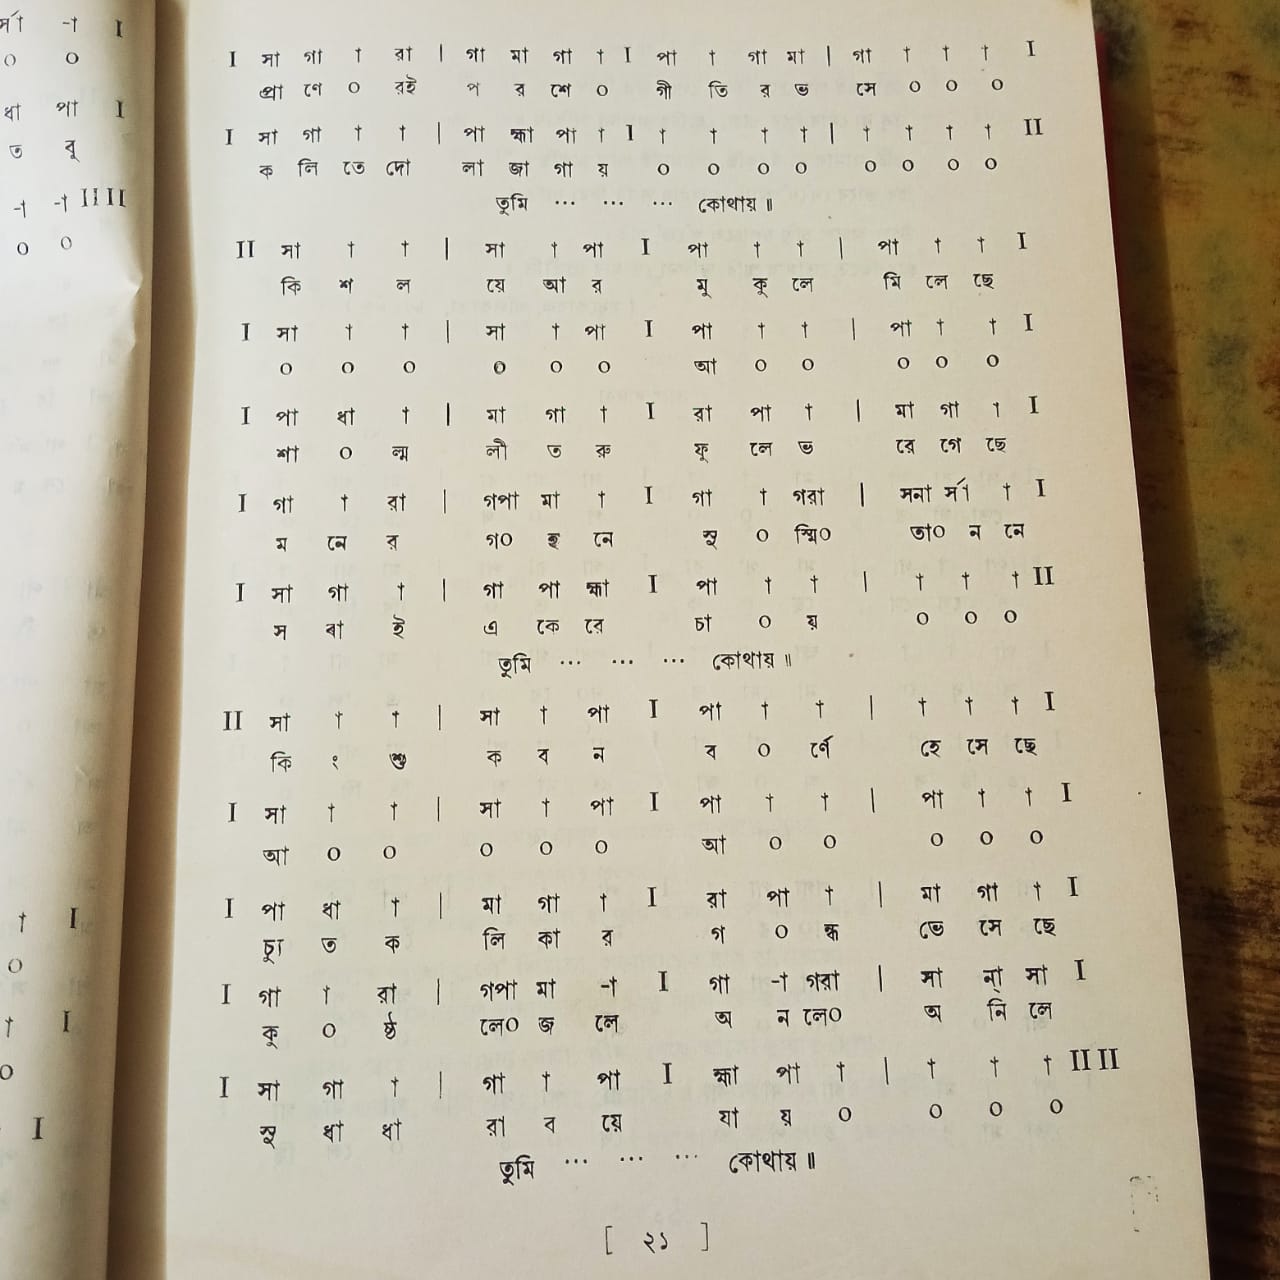 I সা গা † রা | গা মা গা † I পা † গা মা | গা † † † I
প্রা ণে ০ রই প র শে ০ গী তি র ভ সে ০ ০ ০
I সা গা † † | পা হ্মা পা † I † † † † | † † † † II
ক লি তে দো লা জা গা য় ০ ০ ০ ০ ০ ০ ০ ০
তুমি ... ... ... কোথায়॥
II সা † † | সা † পা I পা † † | পা † † I
কি শ ল য়ে আ র মু কু লে মি লে ছে
I সা † † | সা † পা I পা † † | পা † † I
০ ০ ০ ০ ০ ০ আ ০ ০ ০ ০ ০
I পা ধা † | মা গা † I রা পা † | মা গা † I
শা ০ ল্ম লী ত রু ফু লে ভ রে গে ছে
I গা † রা | গপা মা † I গা † গরা | সনা র্সা † I
ম নে র গ০ হ নে সু ০ স্মি০ তা০ ন নে
I সা গা † | গা পা হ্মা I পা † † | † † † II
স বা ই এ কে রে চা ০ য় ০ ০ ০
তুমি ... ... ... কোথায়॥
II সা † † | সা † পা I পা † † | † † † I
কি ং শু ক ব ন ব ০ র্ণে হে সে ছে
I সা † † | সা † পা I পা † † | পা † † I
আ ০ ০ ০ ০ ০ আ ০ ০ ০ ০ ০
I পা ধা † | মা গা † I রা পা † | মা গা † I
চ্যু ত ক লি কা র গ ০ ন্ধ ভে সে ছে
I গা † রা | গপা মা -† I গা -† গরা | সা ন্া সা I
কু ০ ণ্ঠ লে০ জ লে অ ন লে০ অ নি লে
I সা গা † | গা † পা I হ্মা পা † | † † † II II
সু ধা ধা রা ব য়ে যা য় ০ ০ ০ ০
তুমি ... ... ... কোথায়॥
[ ২১ ]